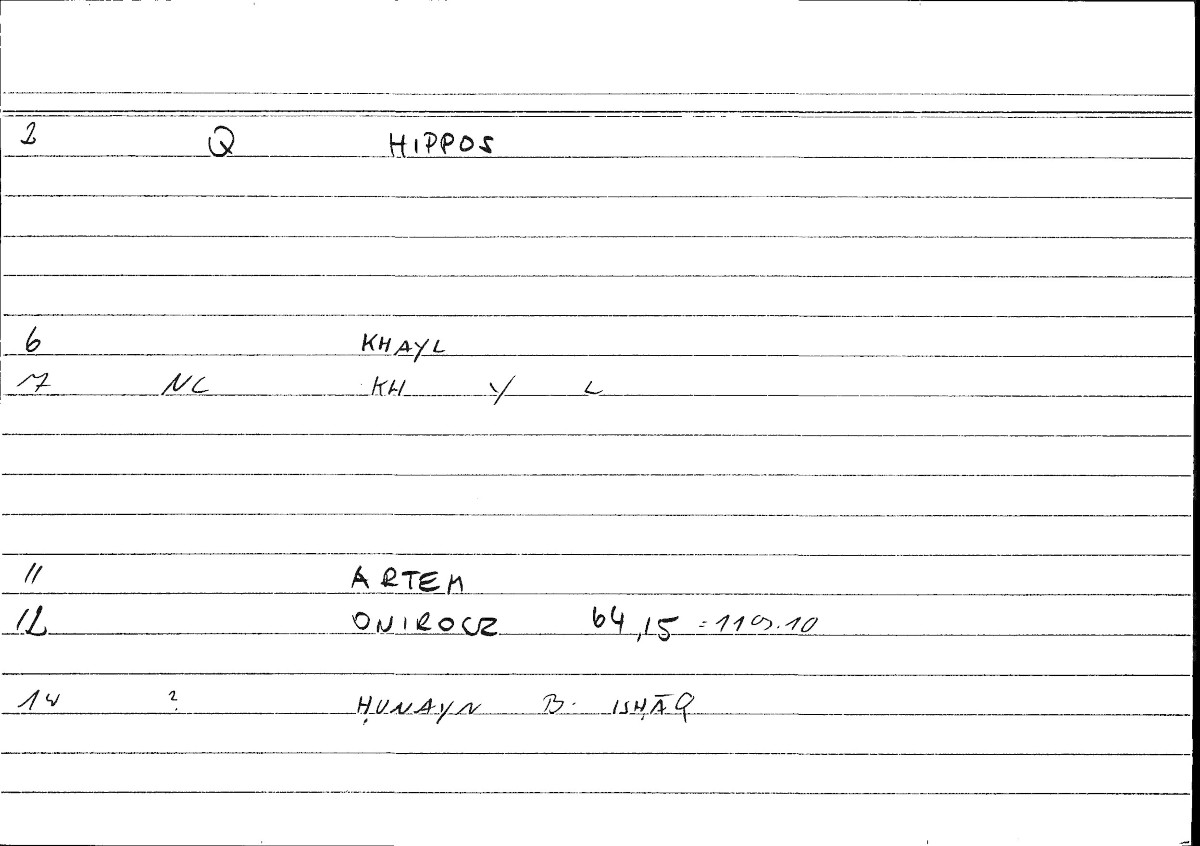 2 Q HIPPOS
6 KHAYL
7 NC KH Y L
11 ARTEM
12 ONIROCR 64,15 = 119.10
14 ? ḤUNAYN B. ISḤĀQ